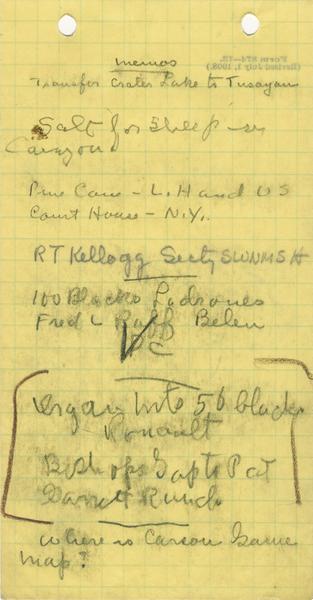 Form 874-12.
(Revised July 1, 1908.)
memos
Transfer Crater Lake to Tusayan
Salt for Sheep in
Canyon
Pine Cane - L. H and U S
Court House - N.Y.
RT Kellogg Secty SWNMSH
100 Blacks Ladrones
Fred L Belen
Organ Mts 50 black
Renault
Bishops Gap to Pat
Garrett Ranch
where is Carson Game
map?